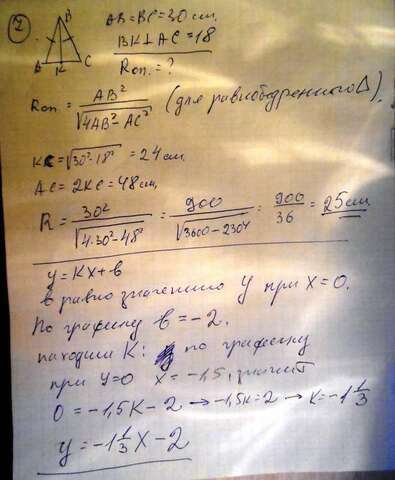 2
B
A K C
AB=BC=30 см.
BK⊥AC=18
Rоп.=?
Rоп. = AB² / √4AB²-AC² (для равнобедренного Δ),
KC=√30²-18² = 24 см.
AC=2KC=48 см,
R = 30² / √4·30²-48² = 900 / √3600-2304 = 900 / 36 = 25 см
y=Kx+b
b равно значению y при x=0.
По графику b=-2.
находим K: по графику
при y=0 x=-1,5, значит
0=-1,5K-2 → -1,5K=2 → K=-1 1/3
y=-1 1/3 x-2